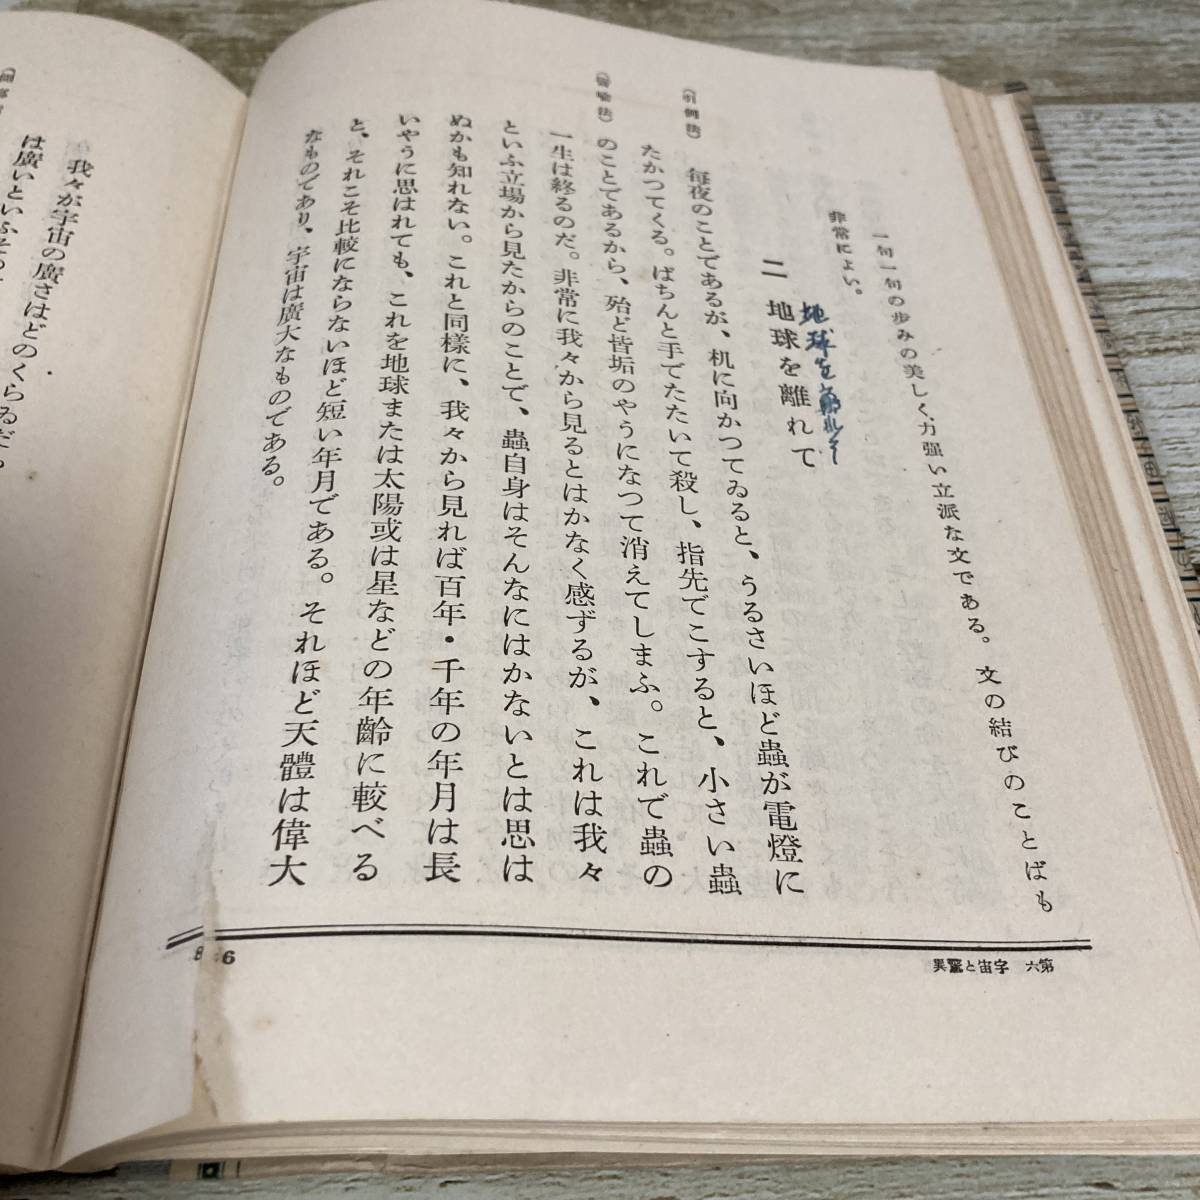 一句一句の歩みの美しく力强い立派な文である。文の結びのことばも
非常によい。
地球を離れて
二 地球を離れて
(引例法)
每夜のことであるが、机に向かつてゐると、うるさいほど蟲が電燈に
たかつてくる。ぱちんと手でたたいて殺し、指先でこすると、小さい蟲
(譬喩法)
のことであるから、殆ど皆垢のやうになつて消えてしまふ。これで蟲の
一生は終るのだ。非常に我々から見るとはかなく感ずるが、これは我々
といふ立場から見たからのことで、蟲自身はそんなにはかないとは思は
ぬかも知れない。これと同樣に、我々から見れば百年・千年の年月は長
いやうに思はれても、これを地球または太陽或は星などの年齡に較べる
と、それこそ比較にならないほど短い年月である。それほど天體は偉大
なものであり、宇宙は廣大なものである。
第六 宇宙と驚異
6
我々が宇宙の廣さはどのくらゐだ
は廣いといふ